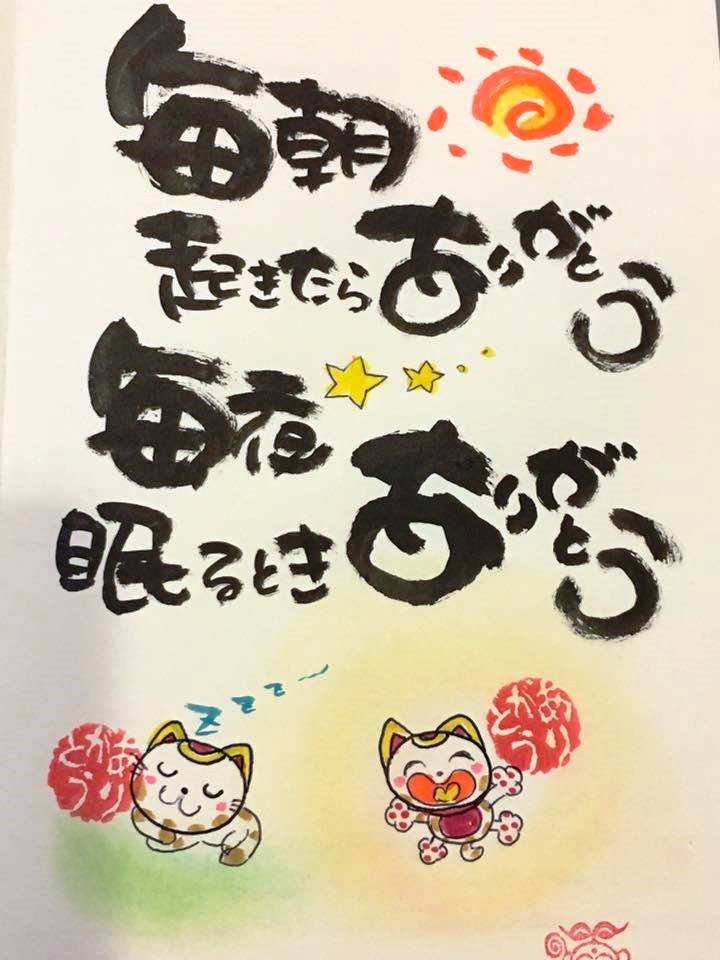 毎朝
起きたらありがとう
毎夜
眠るときありがとう
zzz